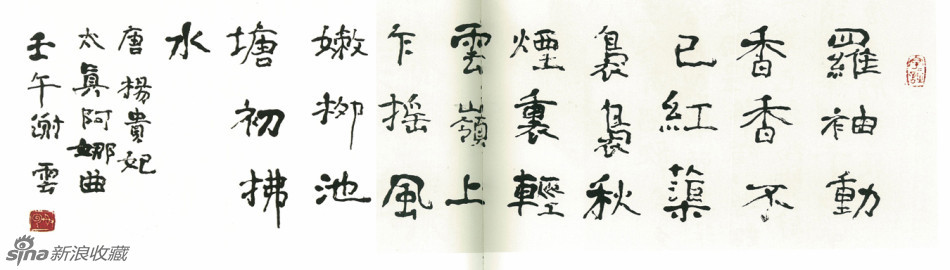 羅袖動
香香不
已紅蕖
裊裊秋
煙裏輕
雲嶺上
乍摇風
嫩柳池
塘初拂
水
唐楊貴妃
太真阿娜曲
壬午謝雲
sina新浪收藏